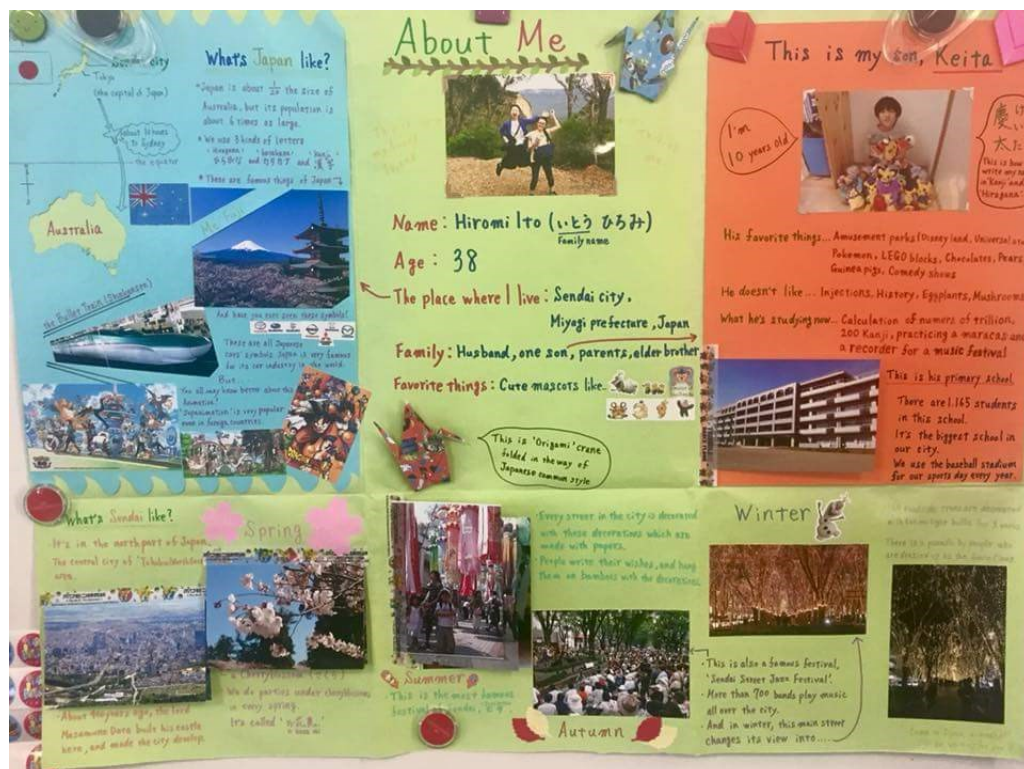 Sendai city
Tokyo
(the capital of Japan)
About 10 hours
to Sydney
the equator
Australia
What's Japan like?
*Japan is about 1/20 the size of
Australia, but its population is
about 6 times as large.
*We use 3 kinds of letters
Hiragana Katakana Kanji
ひらがな and カタカナ and 漢字
*These are famous things of Japan
Mt. Fuji
the Bullet Train (Shinkansen)
And have you ever seen these symbols?
These are all Japanese
cars symbols. Japan is very famous
for its car industry in the world.
But...
You all may know better about this
animation!
'Japanimation' is very popular
even in foreign countries.
About Me
Name: Hiromi Ito (いとう ひろみ)
Family name
Age: 38
The place where I live: Sendai city,
Miyagi prefecture, Japan
Family: Husband, one son, parents, elder brother
Favorite things: Cute mascots like..
This is 'Origami' crane
folded in the way of
Japanese common style
This is my son, Keita
I'm
10 years old
慶 け
い
太 た
This is how
write my
in 'Kanji' and
'Hiragana'
His favorite things... Amusement parks (Disney land, Universal
Pokemon, LEGO blocks, Chocolates, Pears
Guinea pigs, Comedy shows
He doesn't like... Injections, History, Eggplants, Mushrooms
What he's studying now... Calculation of numers of trillion,
200 Kanji, practicing a maracas and
a recorder for a music festival
This is his primary school.
There are 1.165 students
in this school.
It's the biggest school in
our city.
We use the baseball stadium
for our sports day every year.
What's Sendai like?
It's in the north part of Japan.
The central city of
area.
About 400 years ago, the lord
Masamune Date built his castle
here, and made the city develop.
Spring
a Cherryblossom (さくら)
We do parties under cherryblossoms
in every spring.
It's called 'お花見'
Summer
This is the most famous
festival of Sendai,
・Every street in the city is decorated
with these decorations which are
made with papers.
・People write their wishes, and hang
them on bamboos with the decorations.
Autumn
・This is also a famous festival,
'Sendai Street Jazz Festival'.
・More than 700 bands play music
all over the city.
・And in winter, this main street
changes its view into.....
Winter